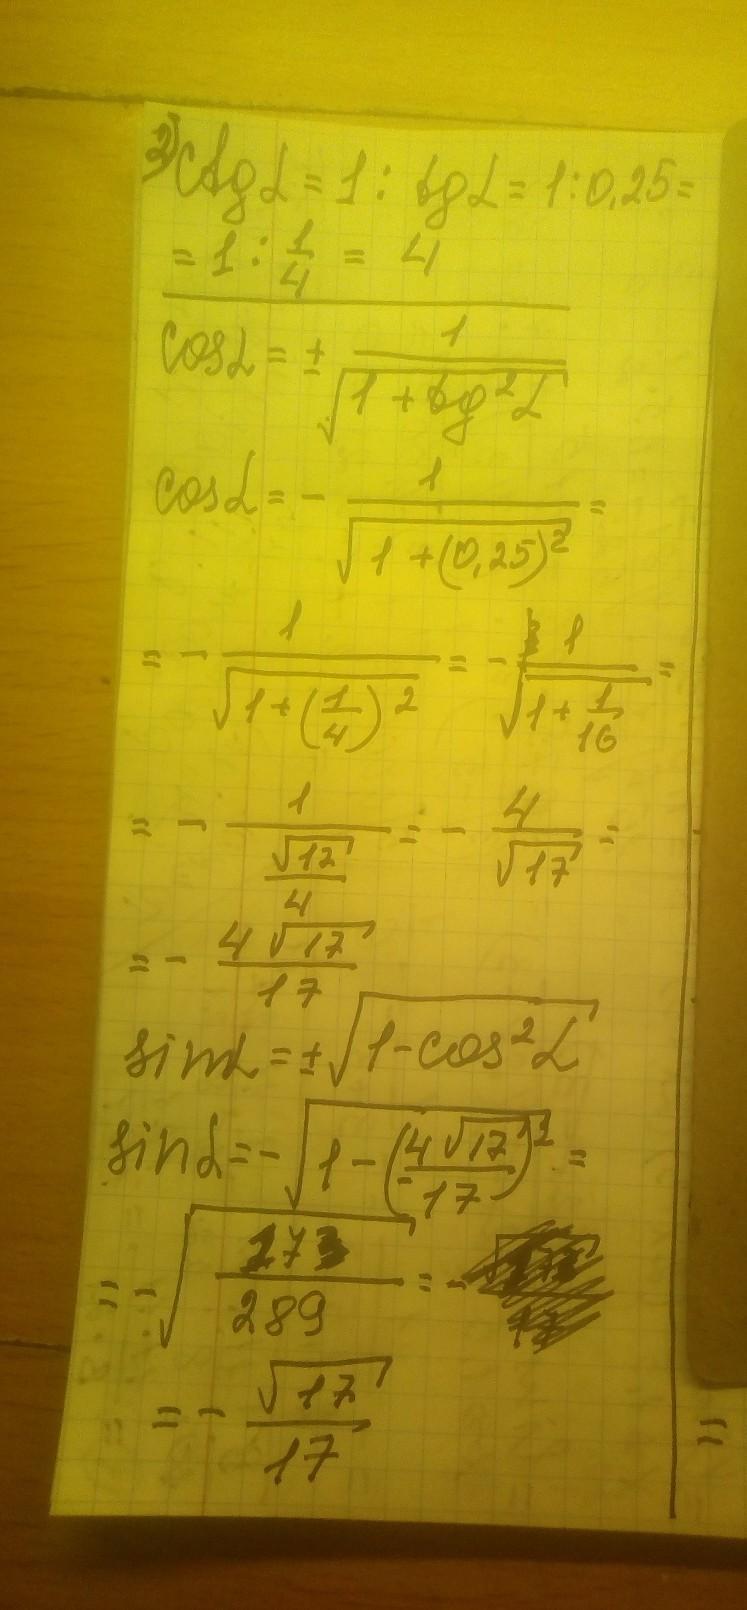 2) ctgα = 1 : tgα = 1 : 0,25 =
= 1 : 1/4 = 4
cosα = ± 1/√(1 + tg²α)
cosα = - 1/√(1 + (0,25)²) =
= - 1/√(1 + (1/4)²) = - 1/√(1 + 1/16) =
= - 1/(√17/4) = - 4/√17 =
= - 4√17/17
sinα = ± √(1 - cos²α)
sinα = - √(1 - (-4√17/17)²) =
= - √(/289) = -
= - √17/17
=